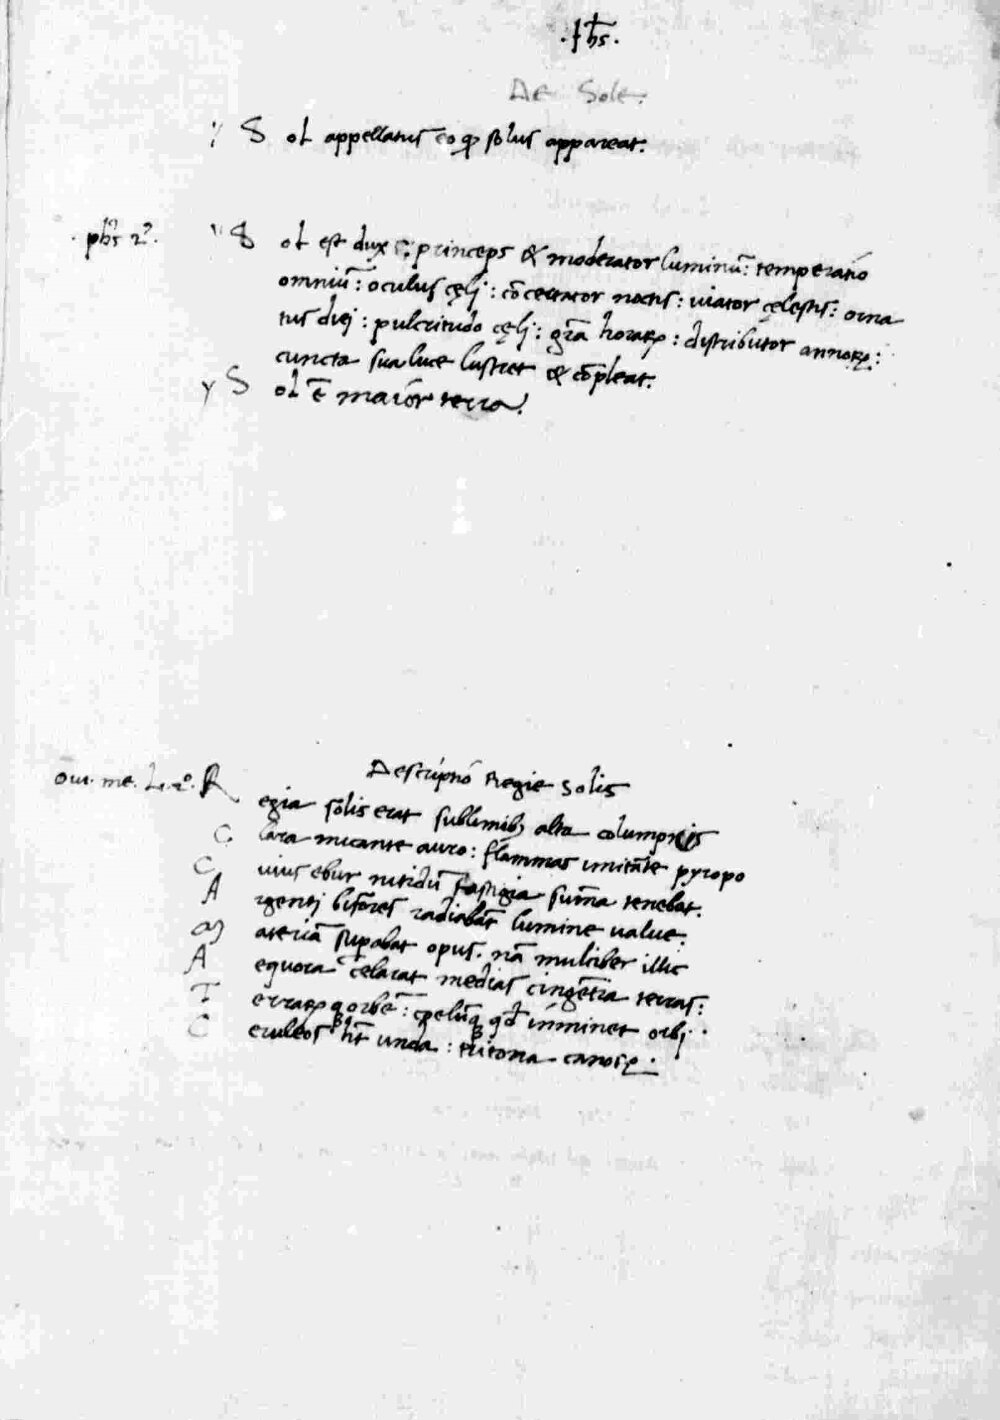 .yhs.
De Sole.
Sol appellatus eo q solus appareat.
phs 2º. Sol est dux princeps & moderator luminū: temperatio
omniū: oculus cęli: cōcertator noctis: uiator cęlestis: orna
tus diei: pulcritudo cęli: grā horaꝝ: distributor annoꝝ:
cuncta sua luce lustret & cōpleat.
Sol ē maior terra.
Descriptio Regie Solis
oui. me. L. 2º. Regia solis erat sublimibꝫ alta columpnis
Clara micante auro: flammas imitāte pyropo
Cuius ebur nitidū fastigia suma tenebat.
Argenti bifores radiabāt lumine value:
Materiā supabat opus. nā mulciber illic
Aequora celarat medias cingētia terras:
Terraꝝ q orbē: celūq qd imminet orbi.
Ceruleos ht unda: tritona canoꝝ.